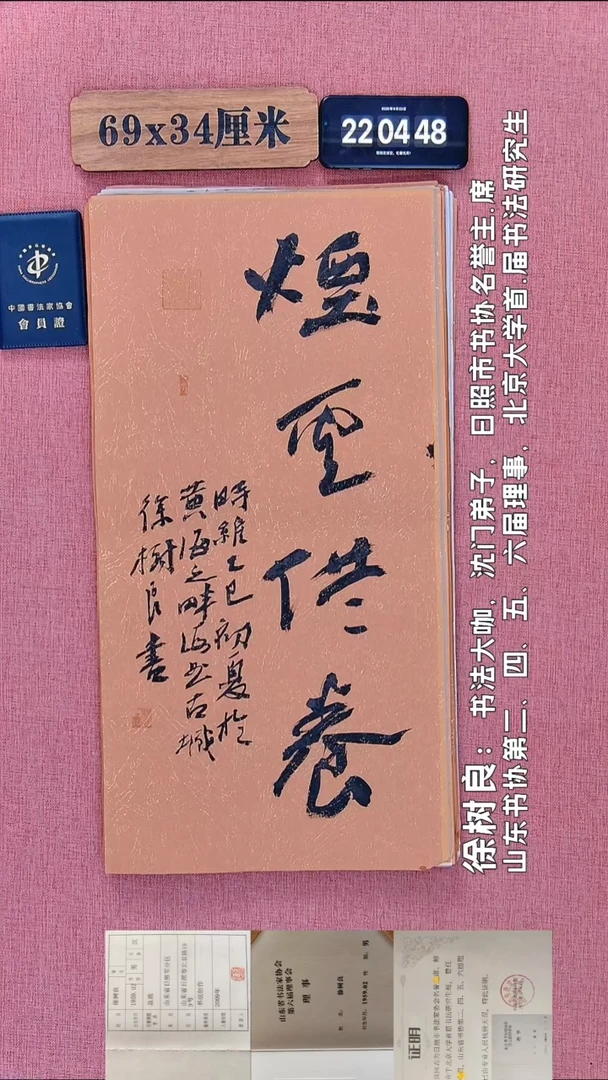 69x34厘米
22 04 48
中國書法家協會
會員證
煙雲供養
時維乙巳初夏於
黄海之畔海曲古城
徐樹良書
徐树良：书法大咖，沈门弟子，日照市书协名誉主.席
山东书协第二、四、五、六届理事，北京大学首.届书法研究生
山东省书法家协会
第六届理事会
理事
证明